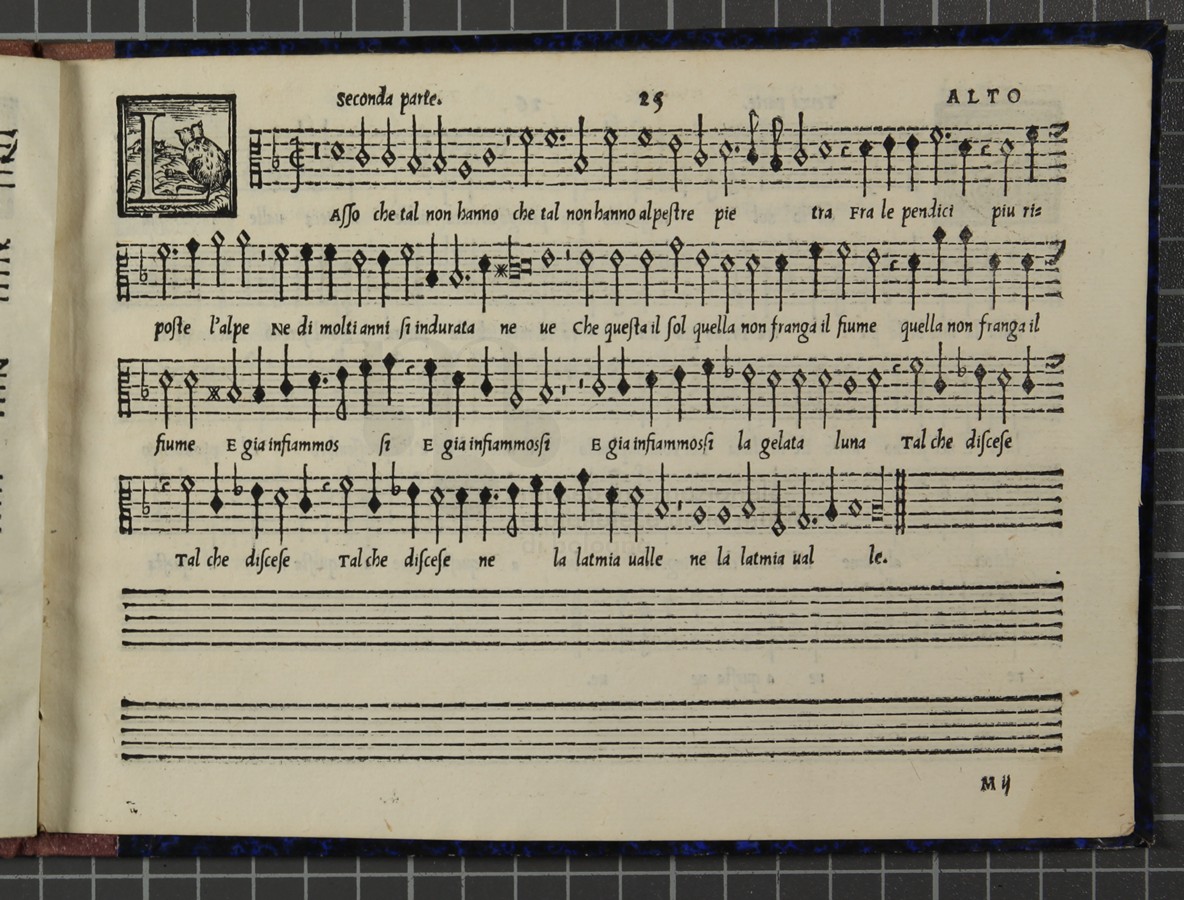 Seconda parte. 25 ALTO
L Aſſo che tal non hanno che tal non hanno alpeſtre pie tra Fra le pendici piu ri=
poſte l'alpe Ne di molti anni ſi indurata ne ue Che queſta il ſol quella non franga il fiume quella non franga il
fiume E gia infiammos ſi E gia infiammosſi E gia infiammosſi la gelata luna Tal che diſceſe
Tal che diſceſe Tal che diſceſe ne la latmia ualle ne la latmia ual le.
M ij